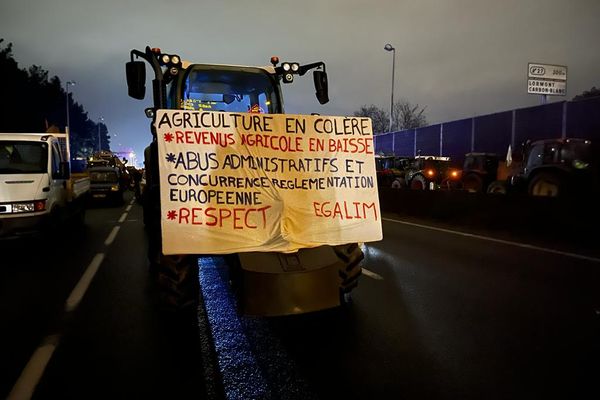 AGRICULTURE EN COLÈRE
*REVENUS AGRICOLE EN BAISSE
*ABUS ADMINISTRATIFS ET
CONCURRENCE REGLEMENTATION
EUROPEENNE
*RESPECT EGALIM
N°27 300m
LORMONT
CARBON-BLANC